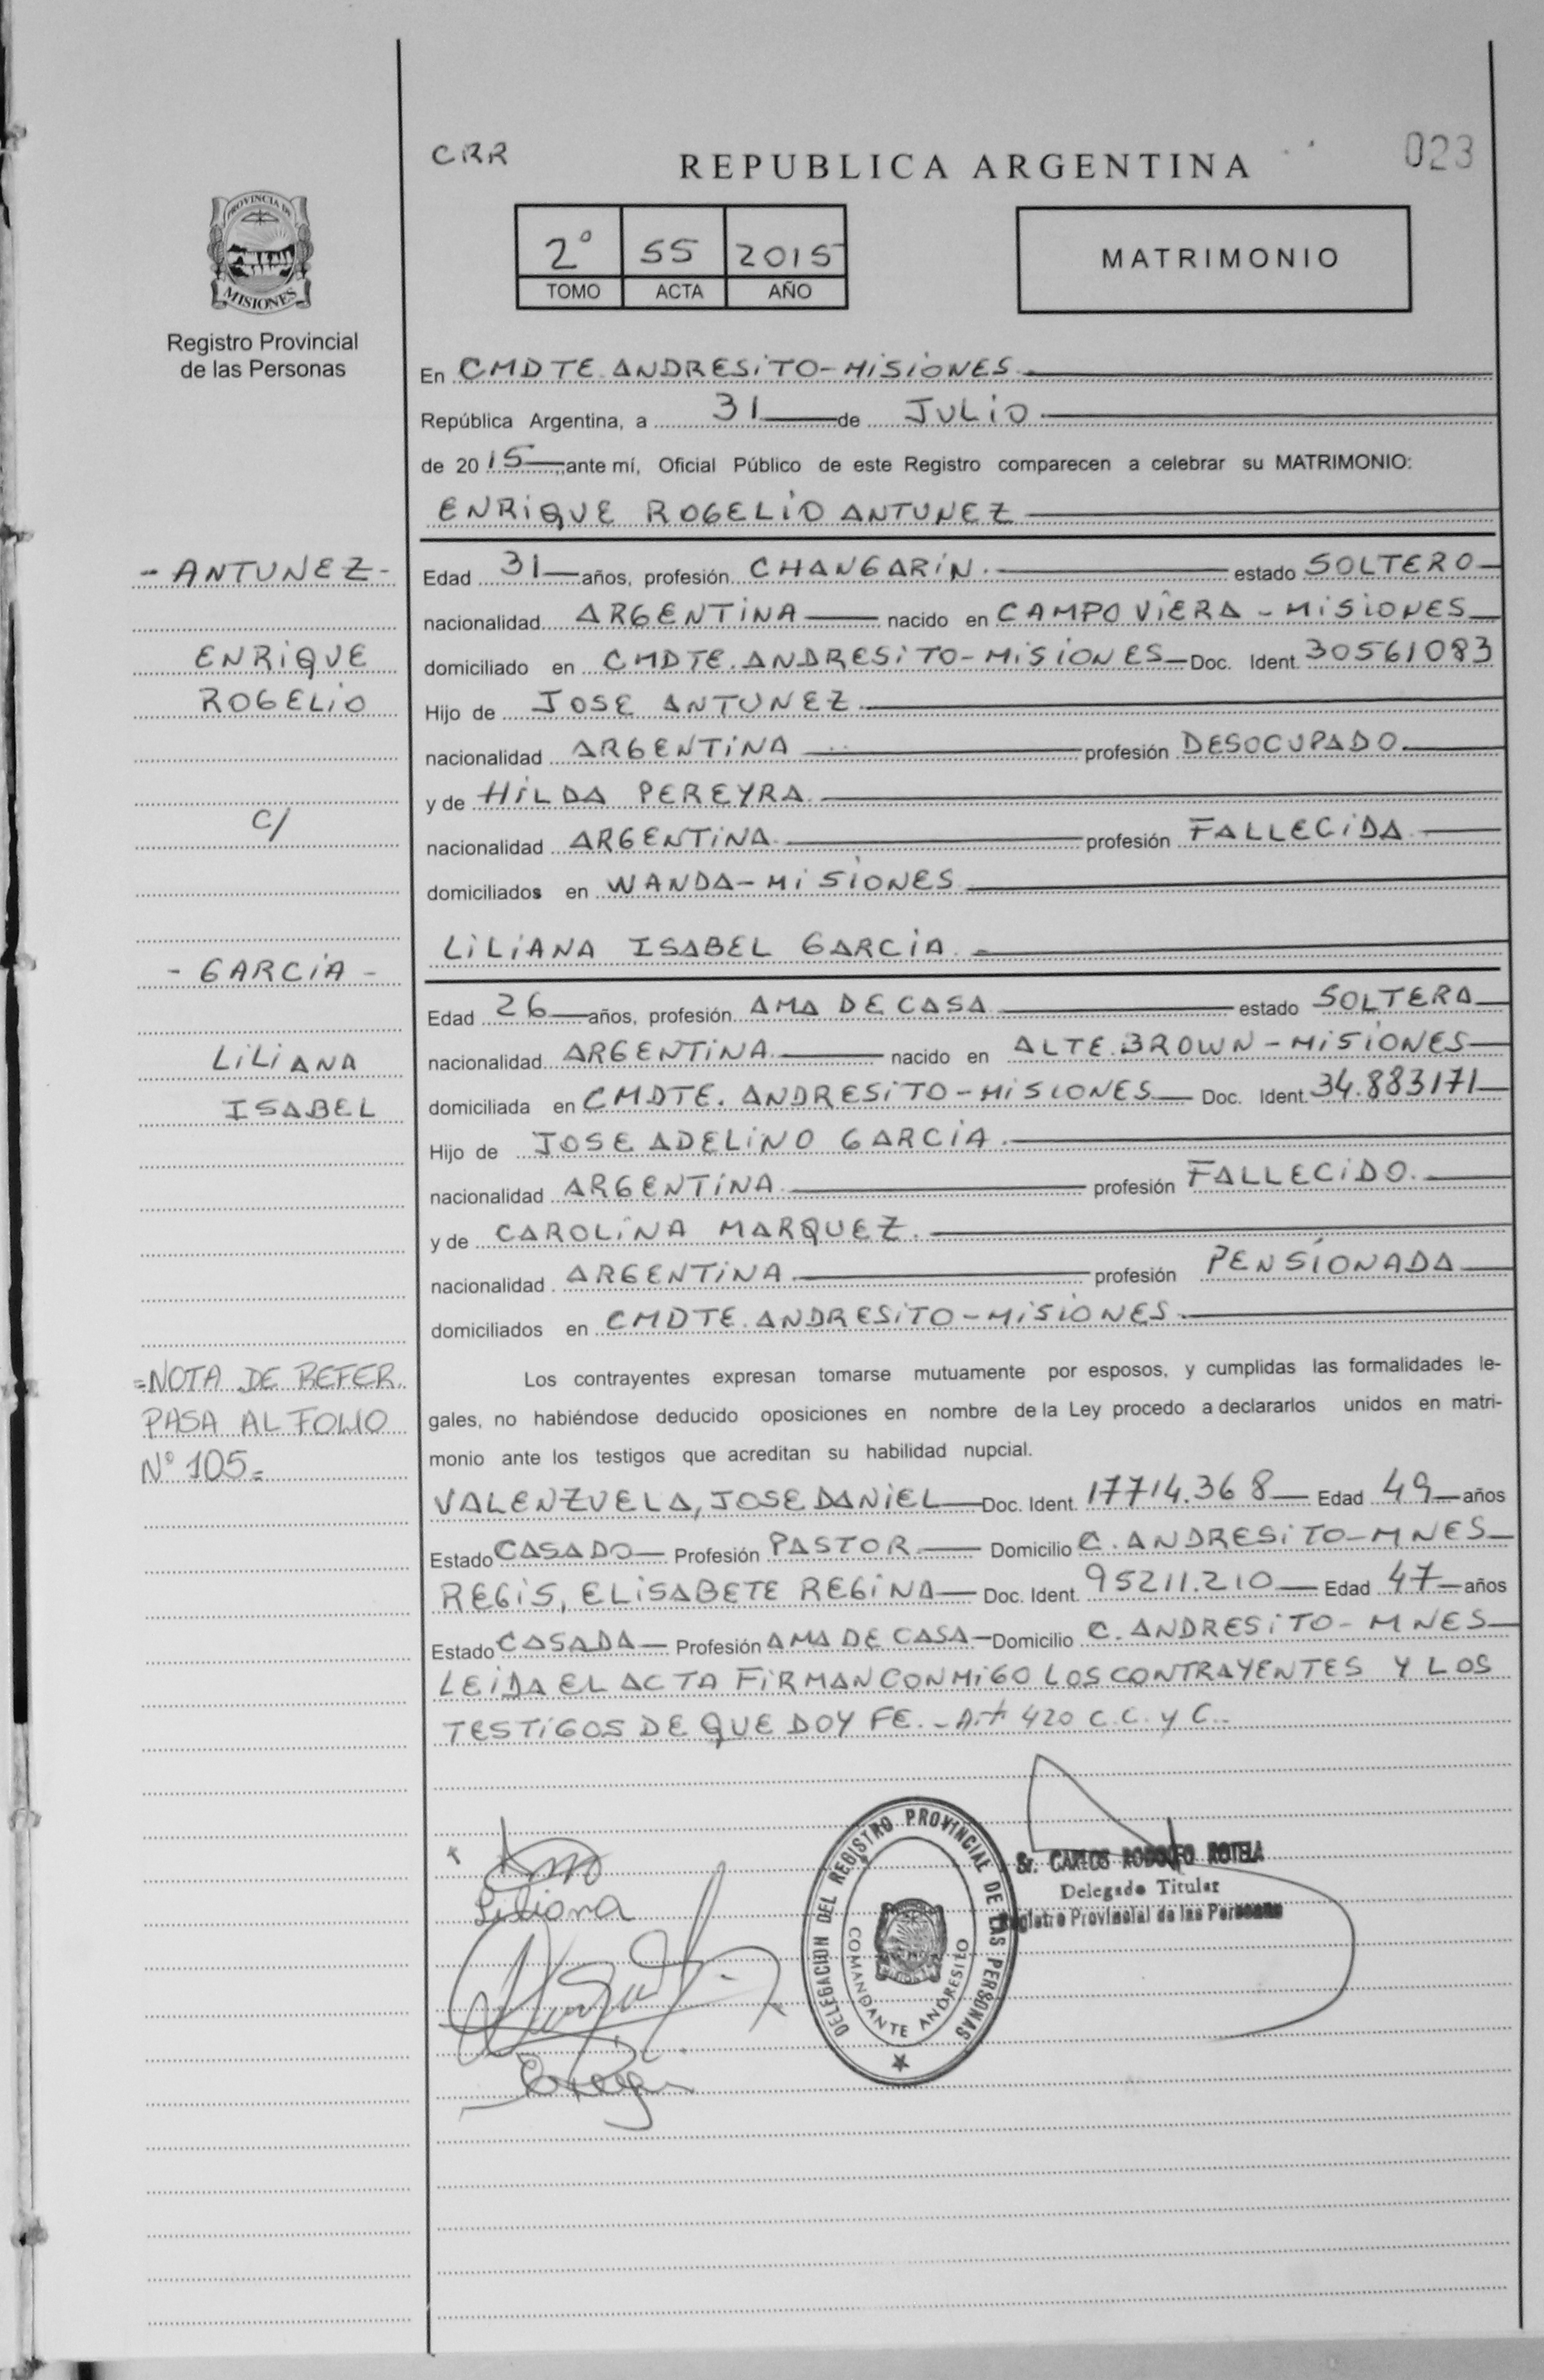 CRR
REPUBLICA ARGENTINA
023
PROVINCIA DE
MISIONES
Registro Provincial
de las Personas
2° 55 2015
TOMO ACTA AÑO
MATRIMONIO
En CMDTE. ANDRESITO - MISIONES
República Argentina, a 31 de JULIO
de 2015, ante mí, Oficial Público de este Registro comparecen a celebrar su MATRIMONIO:
ENRIQUE ROGELIO ANTUNEZ
- ANTUNEZ -
ENRIQUE
ROGELIO
C/
- GARCIA -
LILIANA
ISABEL
=NOTA DE REFER.
PASA AL FOLIO
N° 105=
Edad 31 años, profesión CHANGARIN. estado SOLTERO
nacionalidad ARGENTINA nacido en CAMPO VIERA - MISIONES
domiciliado en CMDTE. ANDRESITO - MISIONES Doc. Ident. 30561083
Hijo de JOSE ANTUNEZ
nacionalidad ARGENTINA profesión DESOCUPADO
y de HILDA PEREYRA
nacionalidad ARGENTINA profesión FALLECIDA
domiciliados en WANDA - MISIONES
LILIANA ISABEL GARCIA
Edad 26 años, profesión AMA DE CASA estado SOLTERA
nacionalidad ARGENTINA nacido en ALTE. BROWN - MISIONES
domiciliada en CMDTE. ANDRESITO - MISIONES Doc. Ident. 34.883171
Hijo de JOSE ADELINO GARCIA
nacionalidad ARGENTINA profesión FALLECIDO.
y de CAROLINA MARQUEZ.
nacionalidad ARGENTINA profesión PENSIONADA
domiciliados en CMDTE. ANDRESITO - MISIONES
Los contrayentes expresan tomarse mutuamente por esposos, y cumplidas las formalidades le-
gales, no habiéndose deducido oposiciones en nombre de la Ley procedo a declararlos unidos en matri-
monio ante los testigos que acreditan su habilidad nupcial.
VALENZUELA, JOSE DANIEL Doc. Ident. 17714.368 Edad 49 años
Estado CASADO Profesión PASTOR Domicilio C. ANDRESITO - MNES
REGIS, ELISABETE REGINA Doc. Ident. 95211.210 Edad 47 años
Estado CASADA Profesión AMA DE CASA Domicilio C. ANDRESITO - MNES
LEIDA EL ACTA FIRMAN CONMIGO LOS CONTRAYENTES Y LOS
TESTIGOS DE QUE DOY FE. - Art 420 C.C. y C.-
Liliana
DELEGACION DEL REGISTRO PROVINCIAL DE LAS PERSONAS
COMANDANTE ANDRESITO
Sr. CARLOS RODOLFO ROTELA
Delegado Titular
Registro Provincial de las Personas